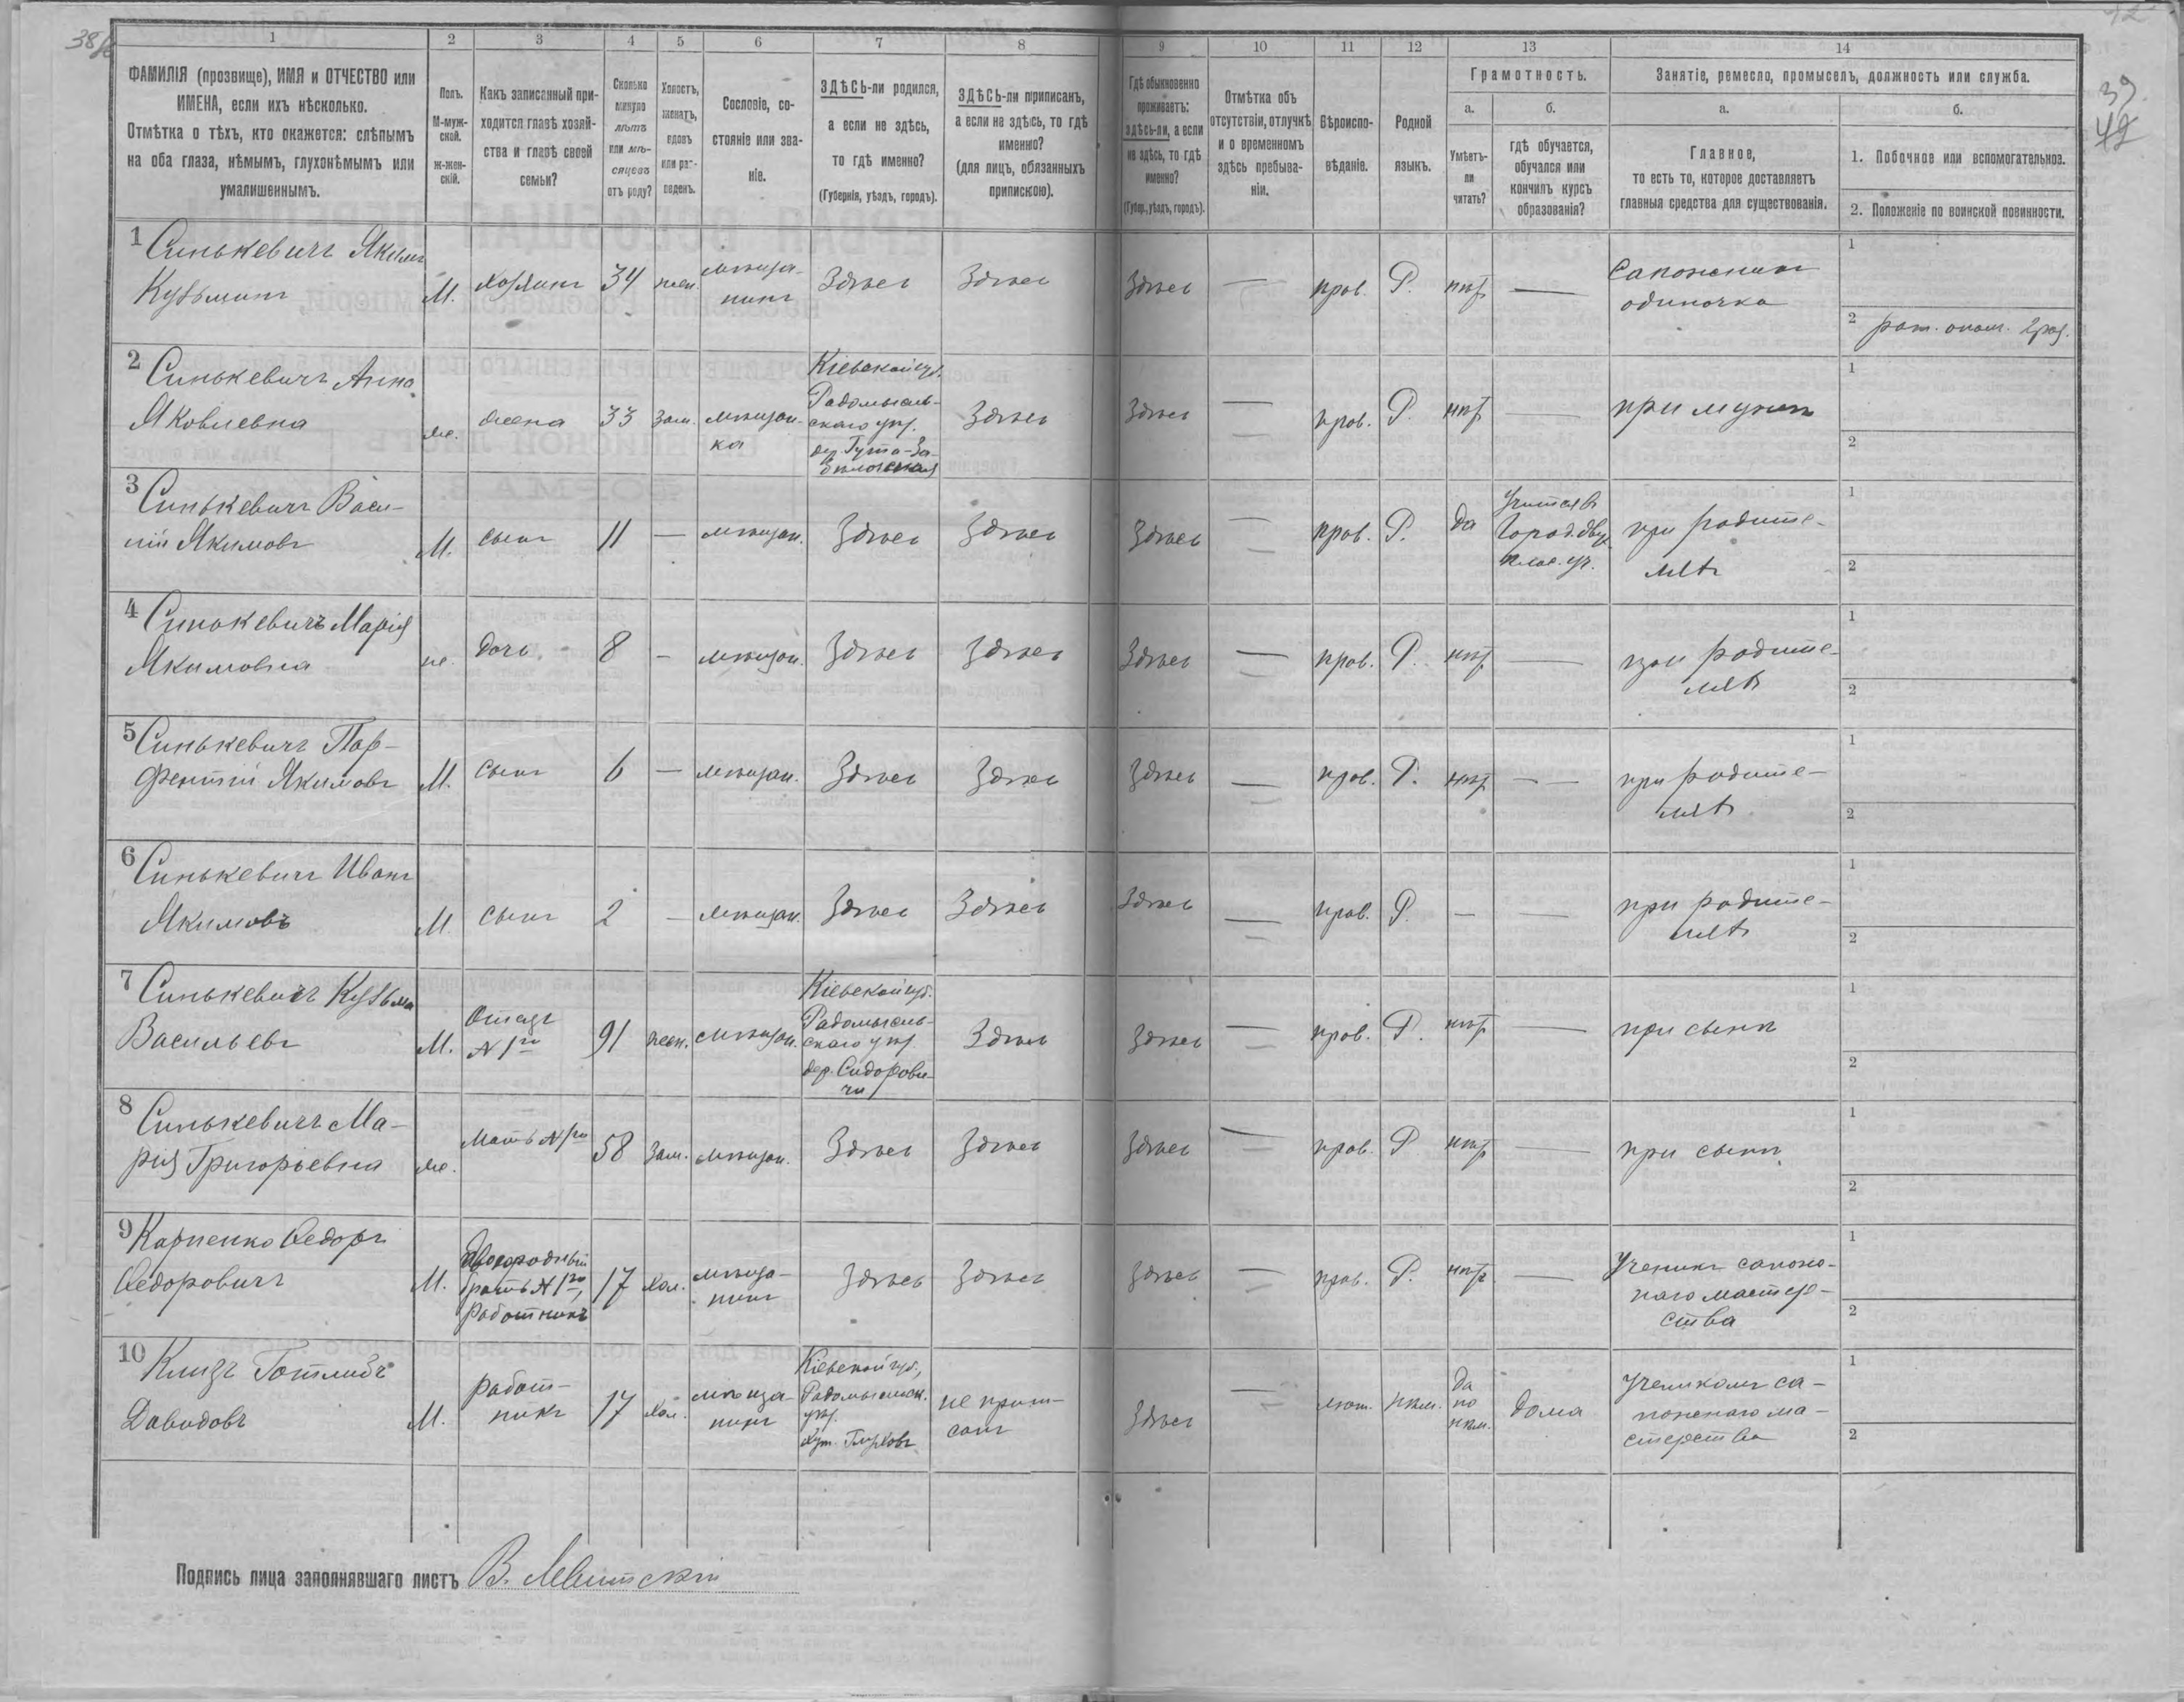 38
39
42
1 2 3 4 5 6 7 8 9 10 11 12 13 14
ФАМИЛІЯ (прозвище), ИМЯ и ОТЧЕСТВО или
ИМЕНА, если ихъ нѣсколько.
Отмѣтка о тѣхъ, кто окажется: слѣпымъ
на оба глаза, нѣмымъ, глухонѣмымъ или
умалишеннымъ.
Полъ.
М-муж-
ской.
ж-жен-
скій.
Какъ записанный при-
ходится главѣ хозяй-
ства и главѣ своей
семьи?
Сколько
минуло
лѣтъ
или мѣ-
сяцевъ
отъ роду?
Холостъ,
женатъ,
вдовъ
или раз-
веденъ.
Сословіе, со-
стояніе или зва-
ніе.
ЗДѢСЬ-ли родился,
а если не здѣсь,
то гдѣ именно?
(Губернія, уѣздъ, городъ).
ЗДѢСЬ-ли приписанъ,
а если не здѣсь, то гдѣ
именно?
(для лицъ, обязанныхъ
припискою).
Гдѣ обыкновенно
проживаетъ:
здѣсь-ли, а если
не здѣсь, то гдѣ
именно?
(Губер., уѣздъ, городъ).
Отмѣтка объ
отсутствіи, отлучкѣ
и о временномъ
здѣсь пребыва-
ніи.
Вѣроиспо-
вѣданіе.
Родной
языкъ.
Грамотность.
а.
Умѣетъ-
ли
читать?
б.
гдѣ обучается,
обучался или
кончилъ курсъ
образованія?
Занятіе, ремесло, промыселъ, должность или служба.
а.
Главное,
то есть то, которое доставляетъ
главныя средства для существованія.
б.
1. Побочное или вспомогательное.
2. Положеніе по воинской повинности.
1 Синькевичъ Якимъ
Кузьминъ М. хозяинъ 34 жен. мѣща-
нинъ Здѣсь Здѣсь Здѣсь — прав. Р. нѣтъ — Сапожникъ
одиночка
1
2 рат. опол. 2 раз.
2 Синькевичъ Анна
Яковлевна же. жена 33 зам. мѣщан-
ка Кіевской губ.
Радомысль-
скаго уѣз.
дер. Гута-За-
бѣлочская Здѣсь Здѣсь — прав. Р. нѣтъ — при мужѣ
1
2
3 Синькевичъ Васи-
лій Якимовъ М. сынъ 11 — мѣщан. Здѣсь Здѣсь Здѣсь — прав. Р. да Учится въ
Город. двух
клас. уч. при родите-
лѣ
1
2
4 Синькевичъ Марія
Якимовна же. дочь 8 — мѣщан. Здѣсь Здѣсь Здѣсь — прав. Р. нѣтъ — при родите-
лѣ
1
2
5 Синькевичъ Пар-
фентій Якимовъ М. сынъ 6 — мѣщан. Здѣсь Здѣсь Здѣсь — прав. Р. нѣтъ — при родите-
лѣ
1
2
6 Синькевичъ Иванъ
Якимовъ М. сынъ 2 — мѣщан. Здѣсь Здѣсь Здѣсь — прав. Р. — — при родите-
лѣ
1
2
7 Синькевичъ Кузьма
Васильевъ М. Отецъ
N 1го 91 жен. мѣщан. Кіевской губ.
Радомысль-
скаго уѣз.
дер. Сидорови-
чи Здѣсь Здѣсь — прав. Р. нѣтъ — при сынѣ
1
2
8 Синькевичъ Ма-
рія Григорьевна же. Мать N 1го 58 зам. мѣщан. Здѣсь Здѣсь Здѣсь — прав. Р. нѣтъ — при сынѣ
1
2
9 Карпенко Ѳедоръ
Ѳедоровичъ М. Двоюродный
братъ N 1го,
работникъ 17 хол. мѣща-
нинъ Здѣсь Здѣсь Здѣсь — прав. Р. нѣтъ — Ученикъ сапож-
наго мастер-
ства
1
2
10 Клизъ Готлибъ
Давидовъ М. работ-
никъ 17 хол. мѣща-
нинъ Кіевской губ.,
Радомысльск.
уѣз.
хут. не припи-
санъ Здѣсь — лют. нѣм. да
по
нѣм. дома Ученикомъ са-
пожнаго ма-
стерства
1
2
Подпись лица заполнявшаго листъ В. Левитскій